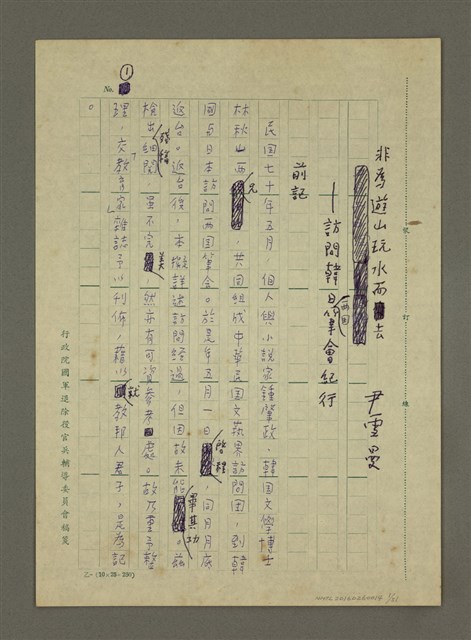 ①
No.
非為遊山玩水而去
尹雪曼
——訪問韓日兩國筆會紀行
前記
民国七十年五月，個人與小說家鍾肇政、韓国文學博士
林秋山兩兄，共同組成中華民国文藝界訪問團，到韓
國与日本訪問兩国筆会。於是年五月一日啓程，同月月底
返台。返台後，本擬詳述訪問經過，但因故未能畢其功。茲
檢出舊稿，雖不完美，然亦有可資參考處。故乃重予整
理，交「教育家」雜誌予以刊佈，藉以就教邦人君子，是為記
。
行政院國軍退除役官兵輔導委員會稿箋
乙-(10×25=250)
裝 訂 線